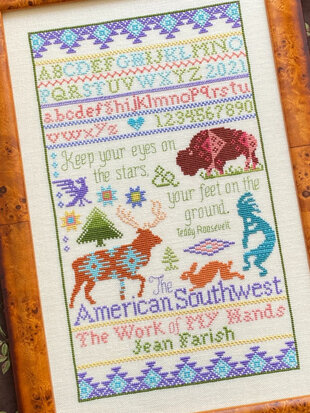 ABCDEFGHIJKLMNO
PQRSTUVWXYZ 2021
abcdefghijklmnopqrstu
vwxyz 1234567890
Keep your eyes on
the stars, &
your feet on the
ground.
Teddy Roosevelt
The
American Southwest
The Work of My Hands
Jean Farish